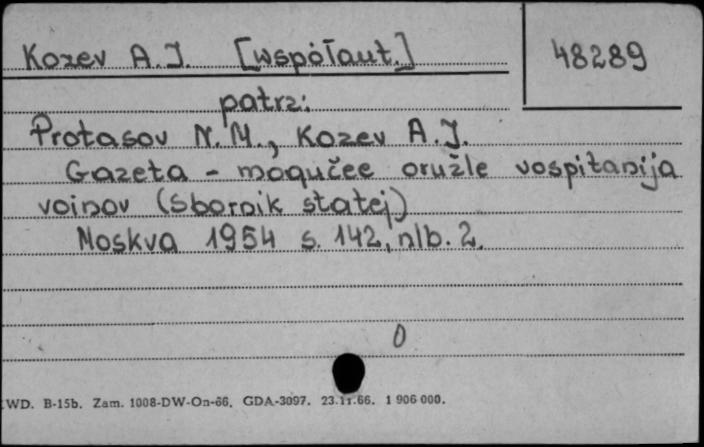 Kozev A.J. [współaut.]
48289
patrz:
Protasov N.M., Kozev A.J.
Gazeta - mogučee oružle vospitanija
voinov (sbornik statej)
Moskva 1954 s. 142, nlb. 2.
0
WD. B-15b. Zam. 1008-DW-On-66. GDA-3097. 23.11.66. 1 906 000.